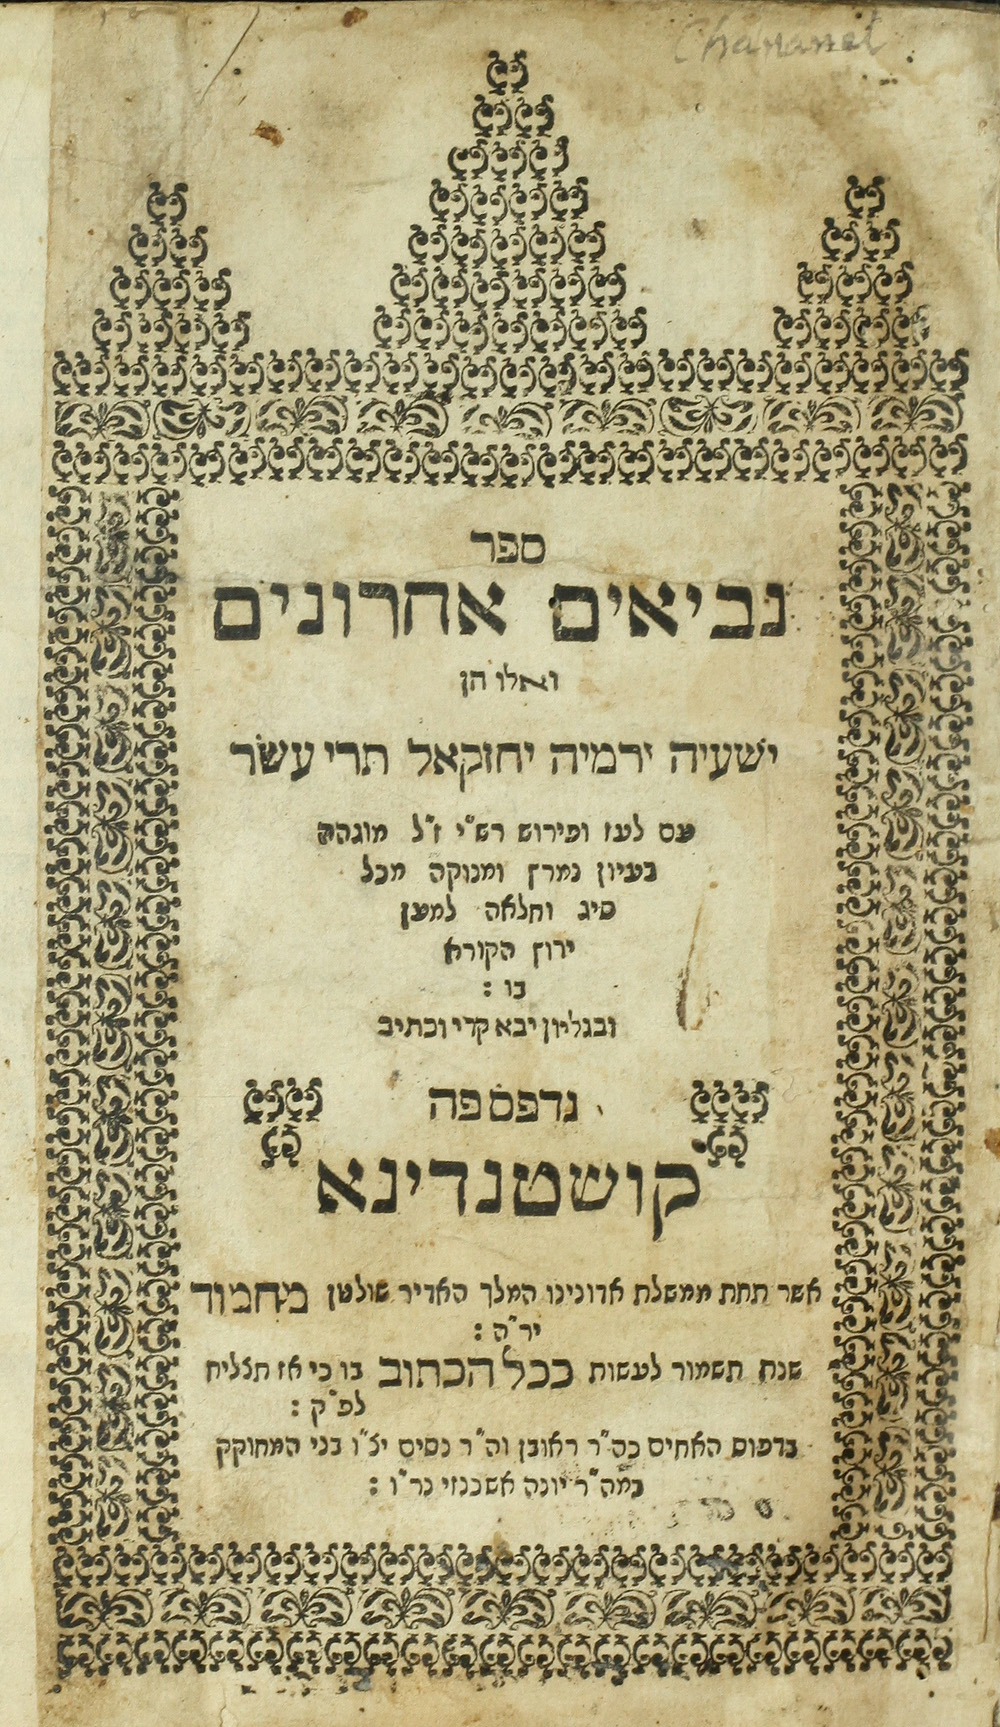 Chananel
ספר
נביאים אחרונים
ואלו הן
ישעיה ירמיה יחזקאל תרי עשר
עם לעז ופירוש רש"י ז"ל מוגהה
בעיון נמרץ ומנוקה מכל
סיג וחלאה למען
ירוץ הקורא
בו :
ובגליון יבא קרי וכתיב
נדפס פה
קושטנדינא
אשר תחת ממשלת אדונינו המלך האדיר שולטן מחמוד
יר"ה :
שנת תשמור לעשות ככל הכתוב בו כי אז תצליח
לפ"ק :
בדפוס האחים כה"ר ראובן וה"ר נסים יצ"ו בני המחוקק
כמה"ר יונה אשכנזי נר"ו :